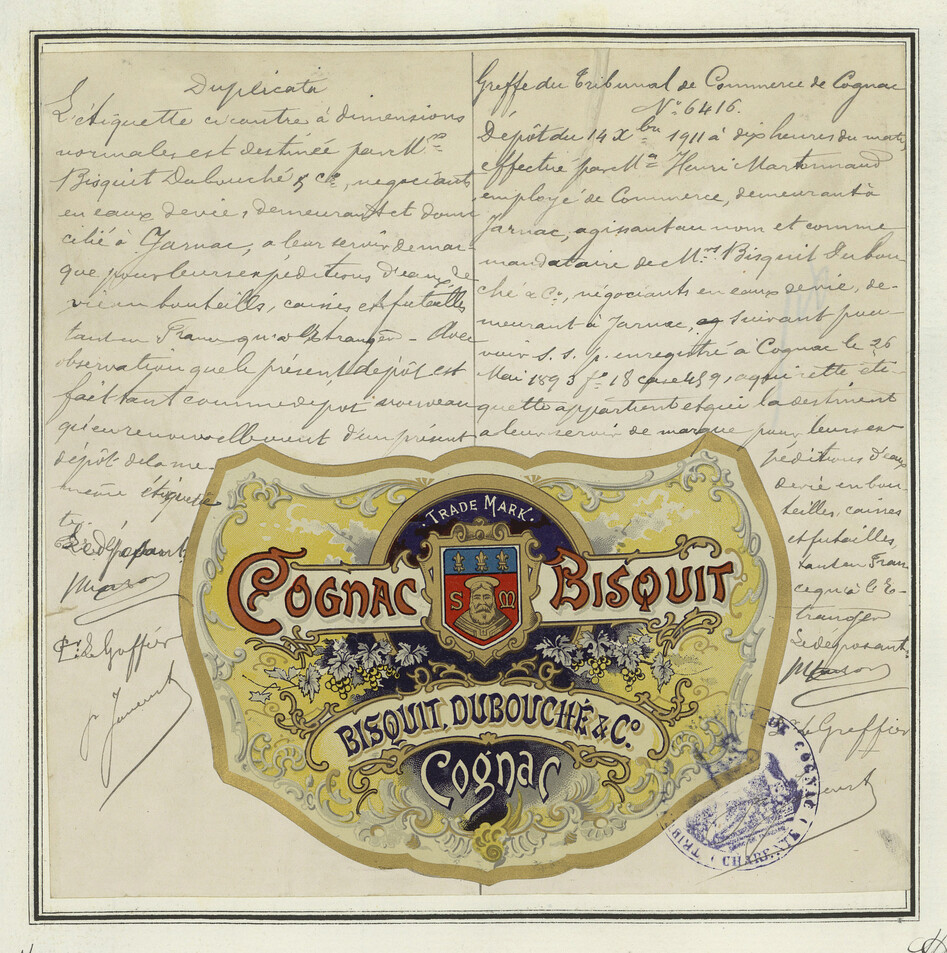 Duplicata
L'étiquette ci contre à dimensions
normales est destinée par Mrs
Bisquit Dubouché & Cie, négociants
en eaux de vie, demeurant et domi
cilié à Jarnac, a leur servir de mar-
que pour leurs expéditions d'eaux de
vie en bouteilles, caisses et futailles
tant en France qu'à l'Etranger - Avec
observation que le présent dépôt est
fait tant comme dépôt nouveau
qu'en renouvellement d'un présent
dépôt de la me
même étiquette
Le déposant
P. Le Greffier
Greffe du Tribunal de Commerce de Cognac
N° 6416.
Dépôt du 14 Xbre 1911 à dix heures du matin,
effectué par Mr Henri
employé de Commerce, demeurant à
Jarnac, agissant au nom et comme
mandataire de Mrs Bisquit Dubou
ché & Co, négociants en eaux de vie, de-
meurant à Jarnac, suivant pou-
voir s. s. p. enregistré à Cognac le 26
Mai 1893 fo 18 case 459, a qui cette éti-
quette appartient et qui la destinent
a leur servir de marque pour leurs ex
péditions d'eaux
de vie en bou-
teilles, caisses
et futailles
tant en Fran
ce qu'à l'E-
tranger
Le déposant
Le Greffier
TRADE MARK
COGNAC BISQUIT
S M
BISQUIT, DUBOUCHÉ & Co.
Cognac
DE COGNAC
CHARENTE